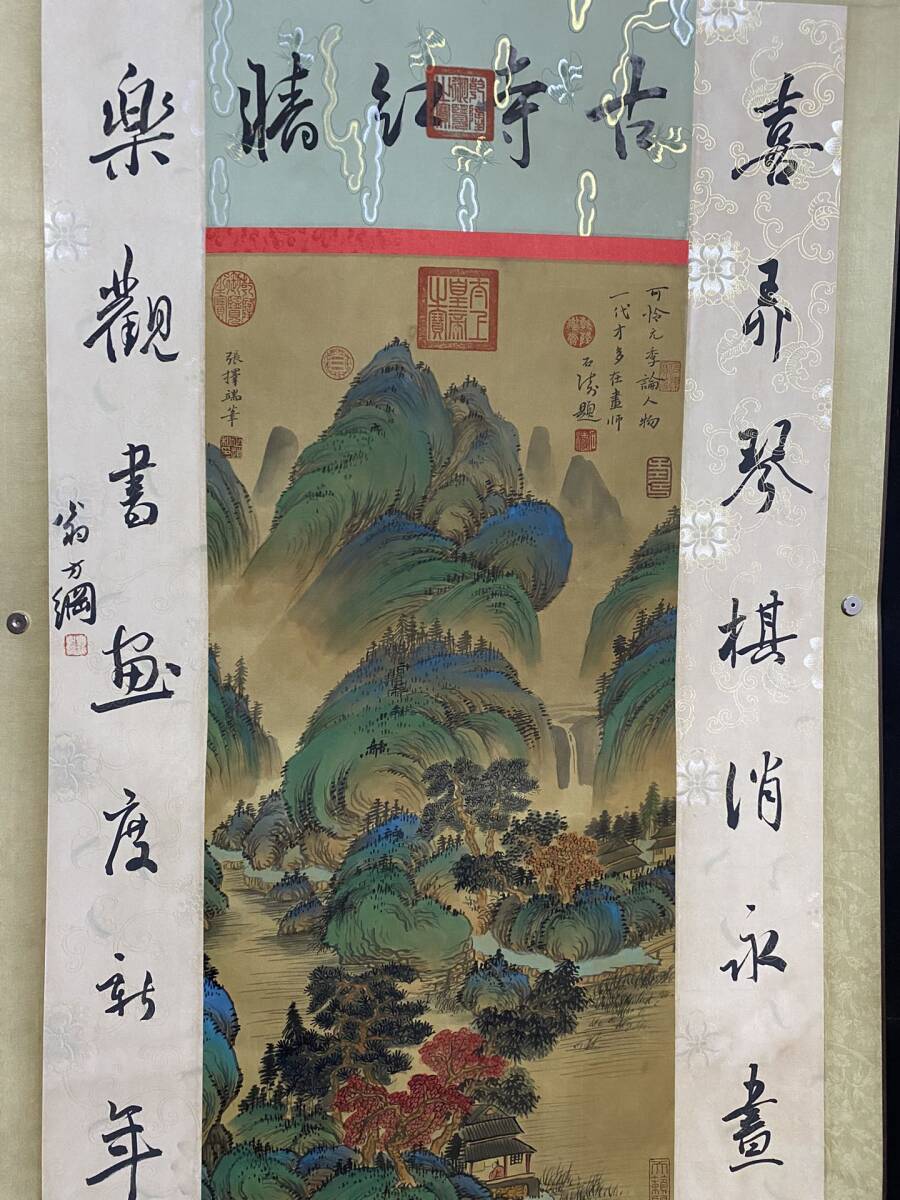 古寺紅牆
喜弄琴棋消永晝
樂觀書畫度新年
翁方綱
可怜元季論人物
一代才多在畫師
石濤題
張擇端筆
太上
皇帝
之寶